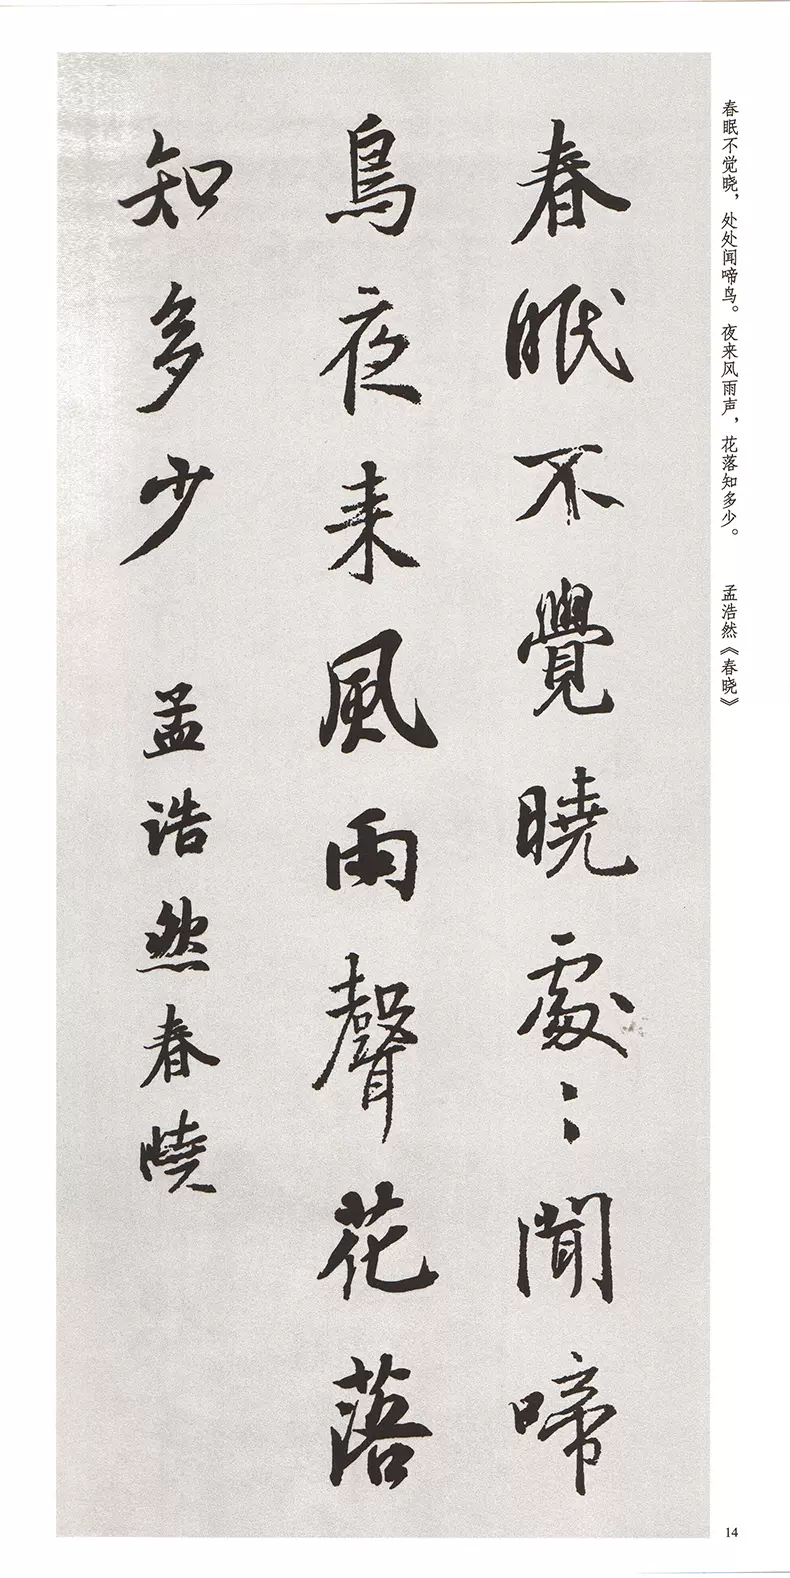 春眠不觉晓，处处闻啼鸟。夜来风雨声，花落知多少。 孟浩然《春晓》
春眠不覺曉處〻聞啼
鳥夜来風雨聲花落
知多少 孟浩然春曉
14